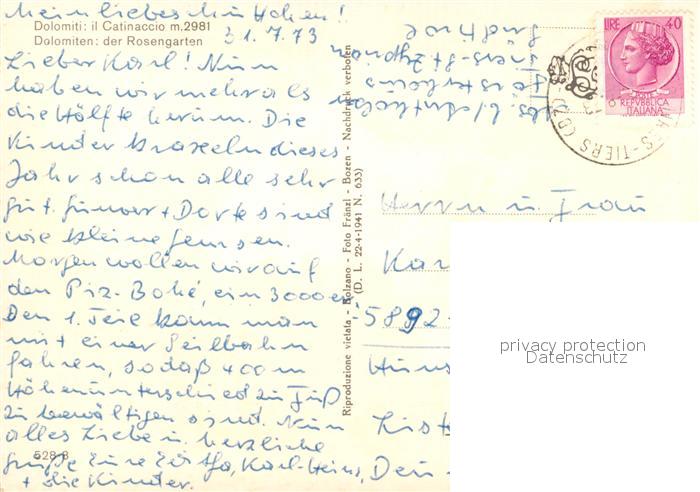 Mein liebes
Dolomiti: il Catinaccio m.2981
Dolomiten: der Rosengarten
31.7.73
Lieber Karl! Nun
haben wir mehr als
die Hälfte herum. Die
Kinder kraxeln dieses
Jahr schon alle sehr
gut. + Dorte sind
wie kleine Gemsen.
Morgen wollen wir auf
den Piz-Bohé, ein 3000er
Den 1. Teil kann man
mit einer Seilbahn
fahren, sodaß 400 m
Höhenunterschied zu Fuß
zu bewältigen sind. Nun
alles Liebe u. herzliche
Grüße Eure Karl-Heins,
+ die Kinder.
528-B
Riproduzione vietata - Bolzano - Foto Fränzl - Bozen - Nachdruck verboten
(D. L. 22-4-1941 N. 633)
LIRE 40
POSTE
REPVBBLICA
ITALIANA
-TIERS (BZ)
Herrn u. Frau
Kar
5892
Hüns
List
Den
privacy protection
Datenschutz